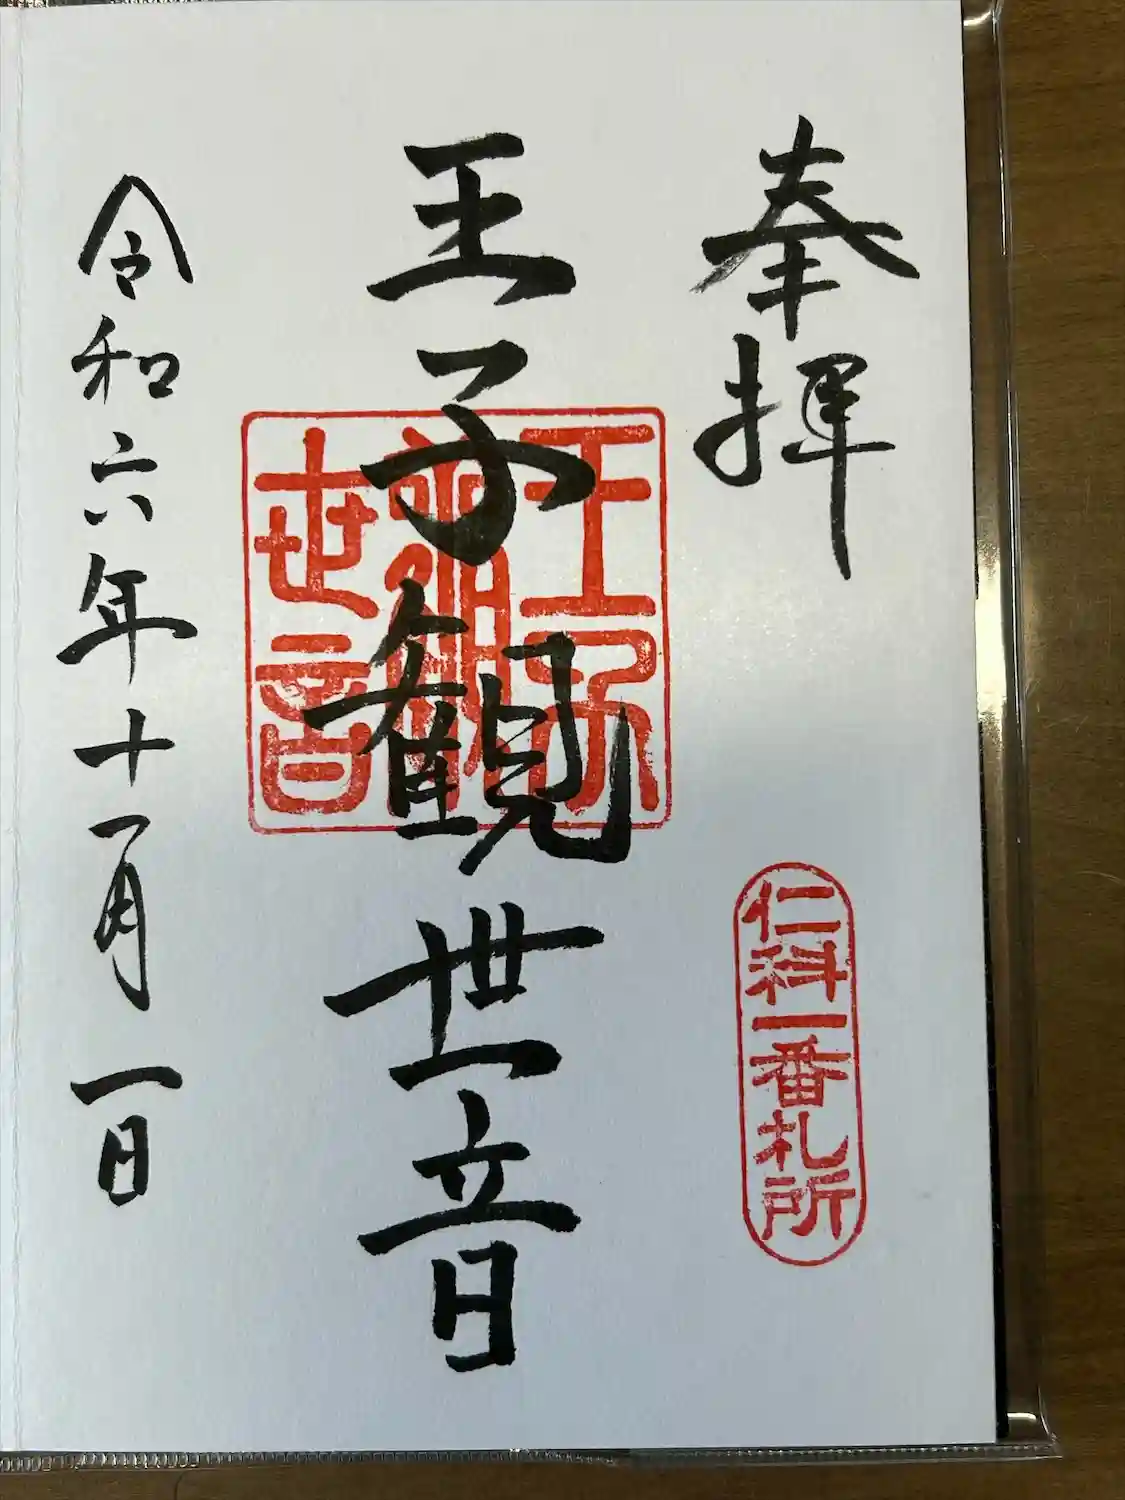 奉拝
仁科一番札所
王子観世音
王子觀世音
令和六年十一月一日